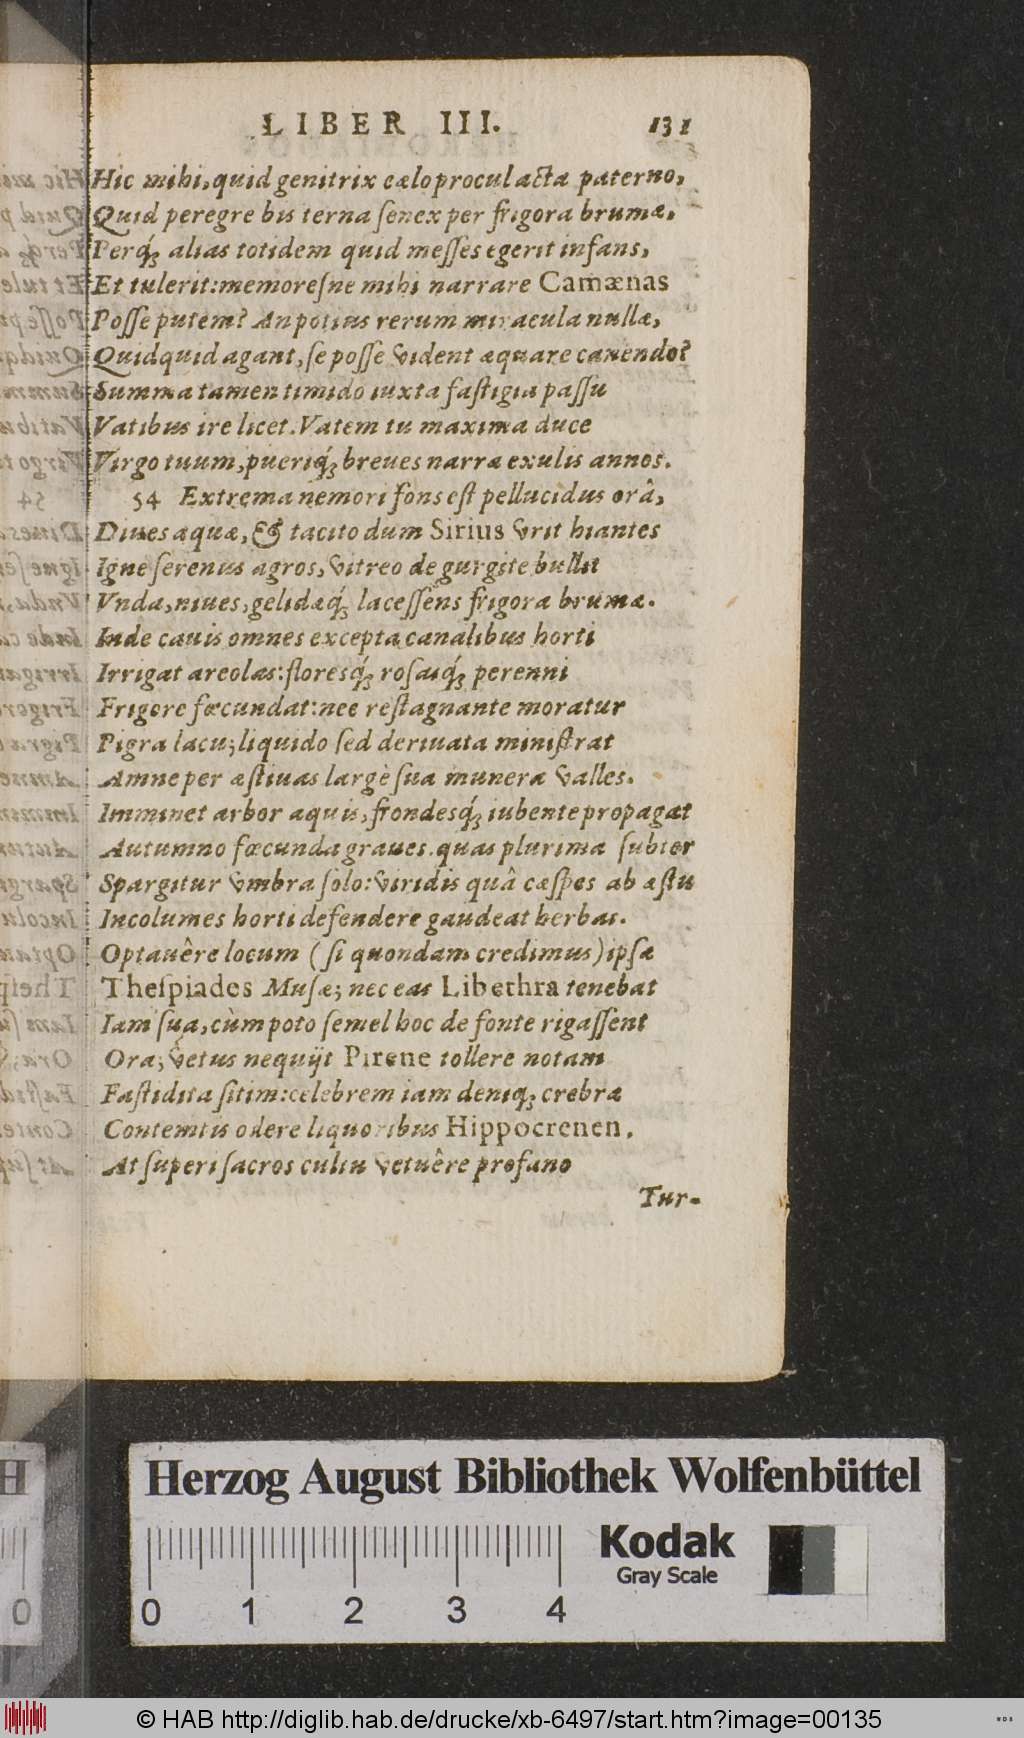 LIBER III. 131
Hic mihi, quid genitrix cælo procul acta paterno,
Quid peregre bis terna ſenex per frigora brumæ,
Perq́ꝫ alias totidem quid meſſes egerit infans,
Et tulerit: memoreſne mihi narrare Camænas
Poſſe putem? An potius rerum miracula nullæ,
Quidquid agant, ſe poſſe vident æquare canendo?
Summa tamen timido iuxta faſtigia paſſu
Vatibus ire licet. Vatem tu maxima duce
Virgo tuum, pueriq́ꝫ breues narra exulis annos.
54 Extrema nemori fons eſt pellucidus orâ,
Diues aquæ, & tacito dum Sirius vrit hiantes
Igne ſerenus agros, vitreo de gurgite bullit
Vnda, niues, gelidæq́ꝫ laceſſens frigora brumæ.
Inde cauis omnes excepta canalibus horti
Irrigat areolas: floresq́ꝫ roſasq́ꝫ perenni
Frigore fœcundat: nec reſtagnante moratur
Pigra lacu; liquido ſed deriuata miniſtrat
Amne per æſtiuas largè ſua munera valles.
Imminet arbor aquis, frondesq́ꝫ iubente propagat
Autumno fœcunda graues. quas plurima ſubter
Spargitur vmbra ſolo: viridis quâ cæſpes ab æſtu
Incolumes horti defendere gaudeat herbas.
Optauêre locum (ſi quondam credimus) ipſæ
Theſpiades Muſæ; nec eas Libethra tenebat
Iam ſua, cùm poto ſemel hoc de fonte rigaſſent
Ora; vetus nequijt Pirene tollere notam
Faſtidita ſitim: celebrem iam deniqꝫ crebra
Contemtis odere liquoribus Hippocrenen.
At ſuperi ſacros cultu vetuêre profano
Tur-
Herzog August Bibliothek Wolfenbüttel
Kodak
Gray Scale
0 1 2 3 4
0
© HAB http://diglib.hab.de/drucke/xb-6497/start.htm?image=00135